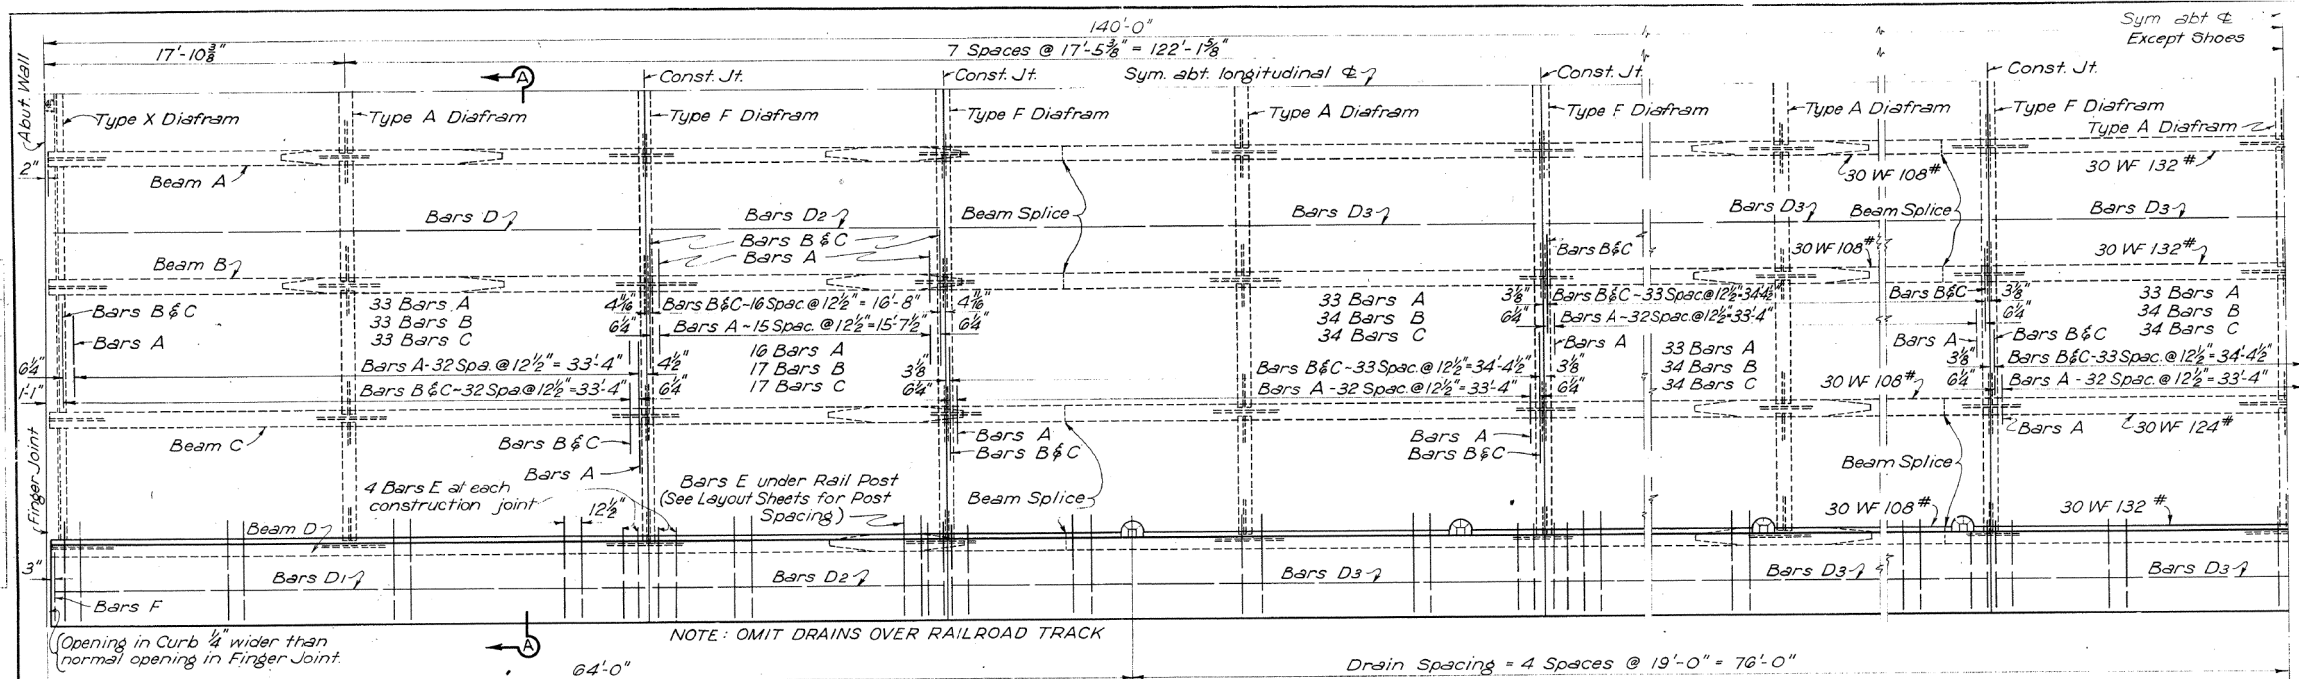 140'-0"
Sym abt ℄
Except Shoes
17'-10⅜"
7 Spaces @ 17'-5⅜" = 122'-1⅝"
Abut. Wall
A
Const. Jt.
Const. Jt.
Sym. abt. longitudinal ℄
Const. Jt.
Const. Jt.
Type X Diafram
Type A Diafram
Type F Diafram
Type F Diafram
Type A Diafram
Type F Diafram
Type A Diafram
Type F Diafram
Type A Diafram
2"
Beam A
30 WF 108#
30 WF 132#
Bars D
Bars D2
Beam Splice
Bars D3
Bars D3
Beam Splice
Bars D3
Bars B & C
Bars A
Bars B & C
30 WF 108#
30 WF 132#
Beam B
33 Bars A
33 Bars B
33 Bars C
4 11/16"
6¼"
Bars B & C - 16 Spac. @ 12½" = 16'-8"
Bars A - 15 Spac. @ 12½" = 15'-7½"
4 11/16"
6¼"
33 Bars A
34 Bars B
34 Bars C
3⅛"
6¼"
Bars B & C - 33 Spac. @ 12½" = 34'-4½"
Bars A - 32 Spac. @ 12½" = 33'-4"
Bars B & C
3⅛"
6¼"
33 Bars A
34 Bars B
34 Bars C
Bars B & C
Bars A
16 Bars A
17 Bars B
17 Bars C
Bars A
33 Bars A
34 Bars B
34 Bars C
Bars A
Bars B & C
6¼"
1'-1"
Bars A - 32 Spa. @ 12½" = 33'-4"
Bars B & C - 32 Spa. @ 12½" = 33'-4"
4½"
6¼"
3⅛"
6¼"
Bars B & C - 33 Spac. @ 12½" = 34'-4½"
Bars A - 32 Spac. @ 12½" = 33'-4"
3⅛"
6¼"
30 WF 108#
3⅛"
6¼"
Bars B & C - 33 Spac. @ 12½" = 34'-4½"
Bars A - 32 Spac. @ 12½" = 33'-4"
Finger Joint
Beam C
Bars B & C
Bars A
Bars A
Bars B & C
Bars A
Bars B & C
Bars A
30 WF 124#
4 Bars E at each
construction joint
12½"
Bars E under Rail Post
(See Layout Sheets for Post
Spacing)
Beam Splice
Beam Splice
Beam D
30 WF 108#
30 WF 132#
3"
Bars D1
Bars D2
Bars D3
Bars D3
Bars D3
Bars F
Opening in Curb ¼" wider than
normal opening in Finger Joint.
A
NOTE: OMIT DRAINS OVER RAILROAD TRACK
64'-0"
Drain Spacing = 4 Spaces @ 19'-0" = 76'-0"